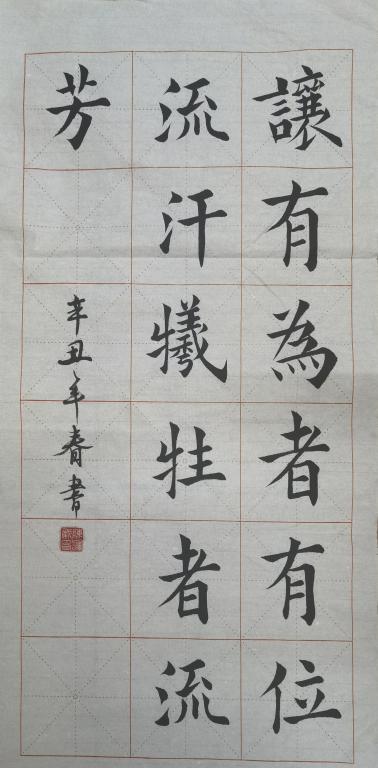 讓有為者有位
流汗犠牲者流
芳
辛丑年春書